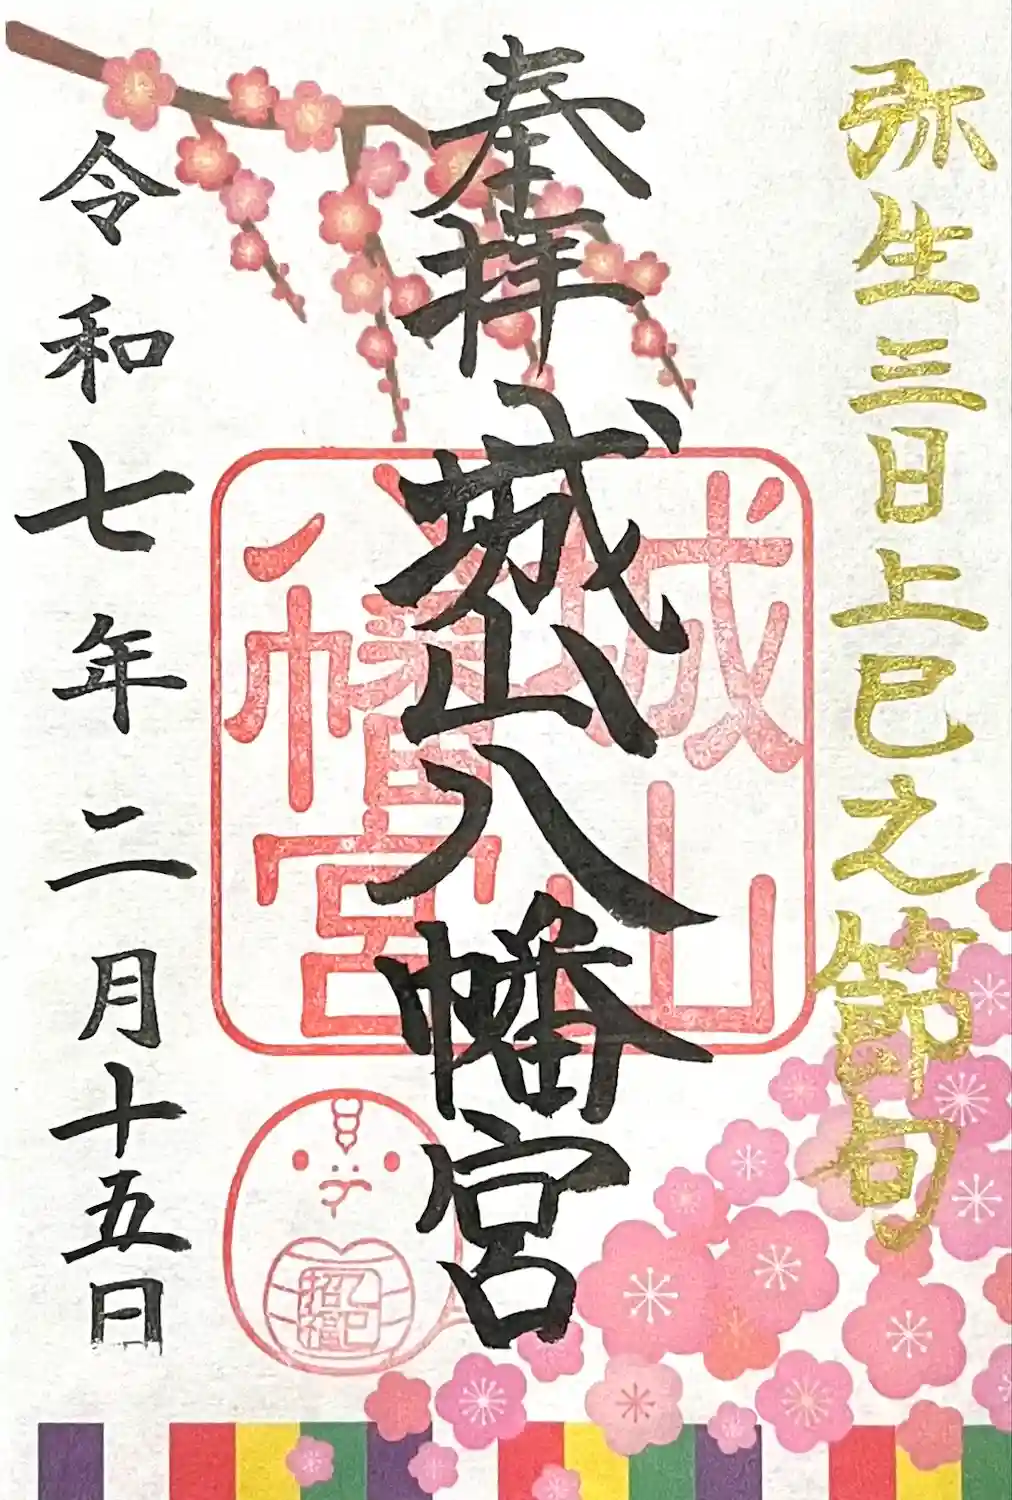 弥生三日上巳之節句
奉拝
城山八幡宮
城山八幡宮
乙巳
招福
令和七年二月十五日